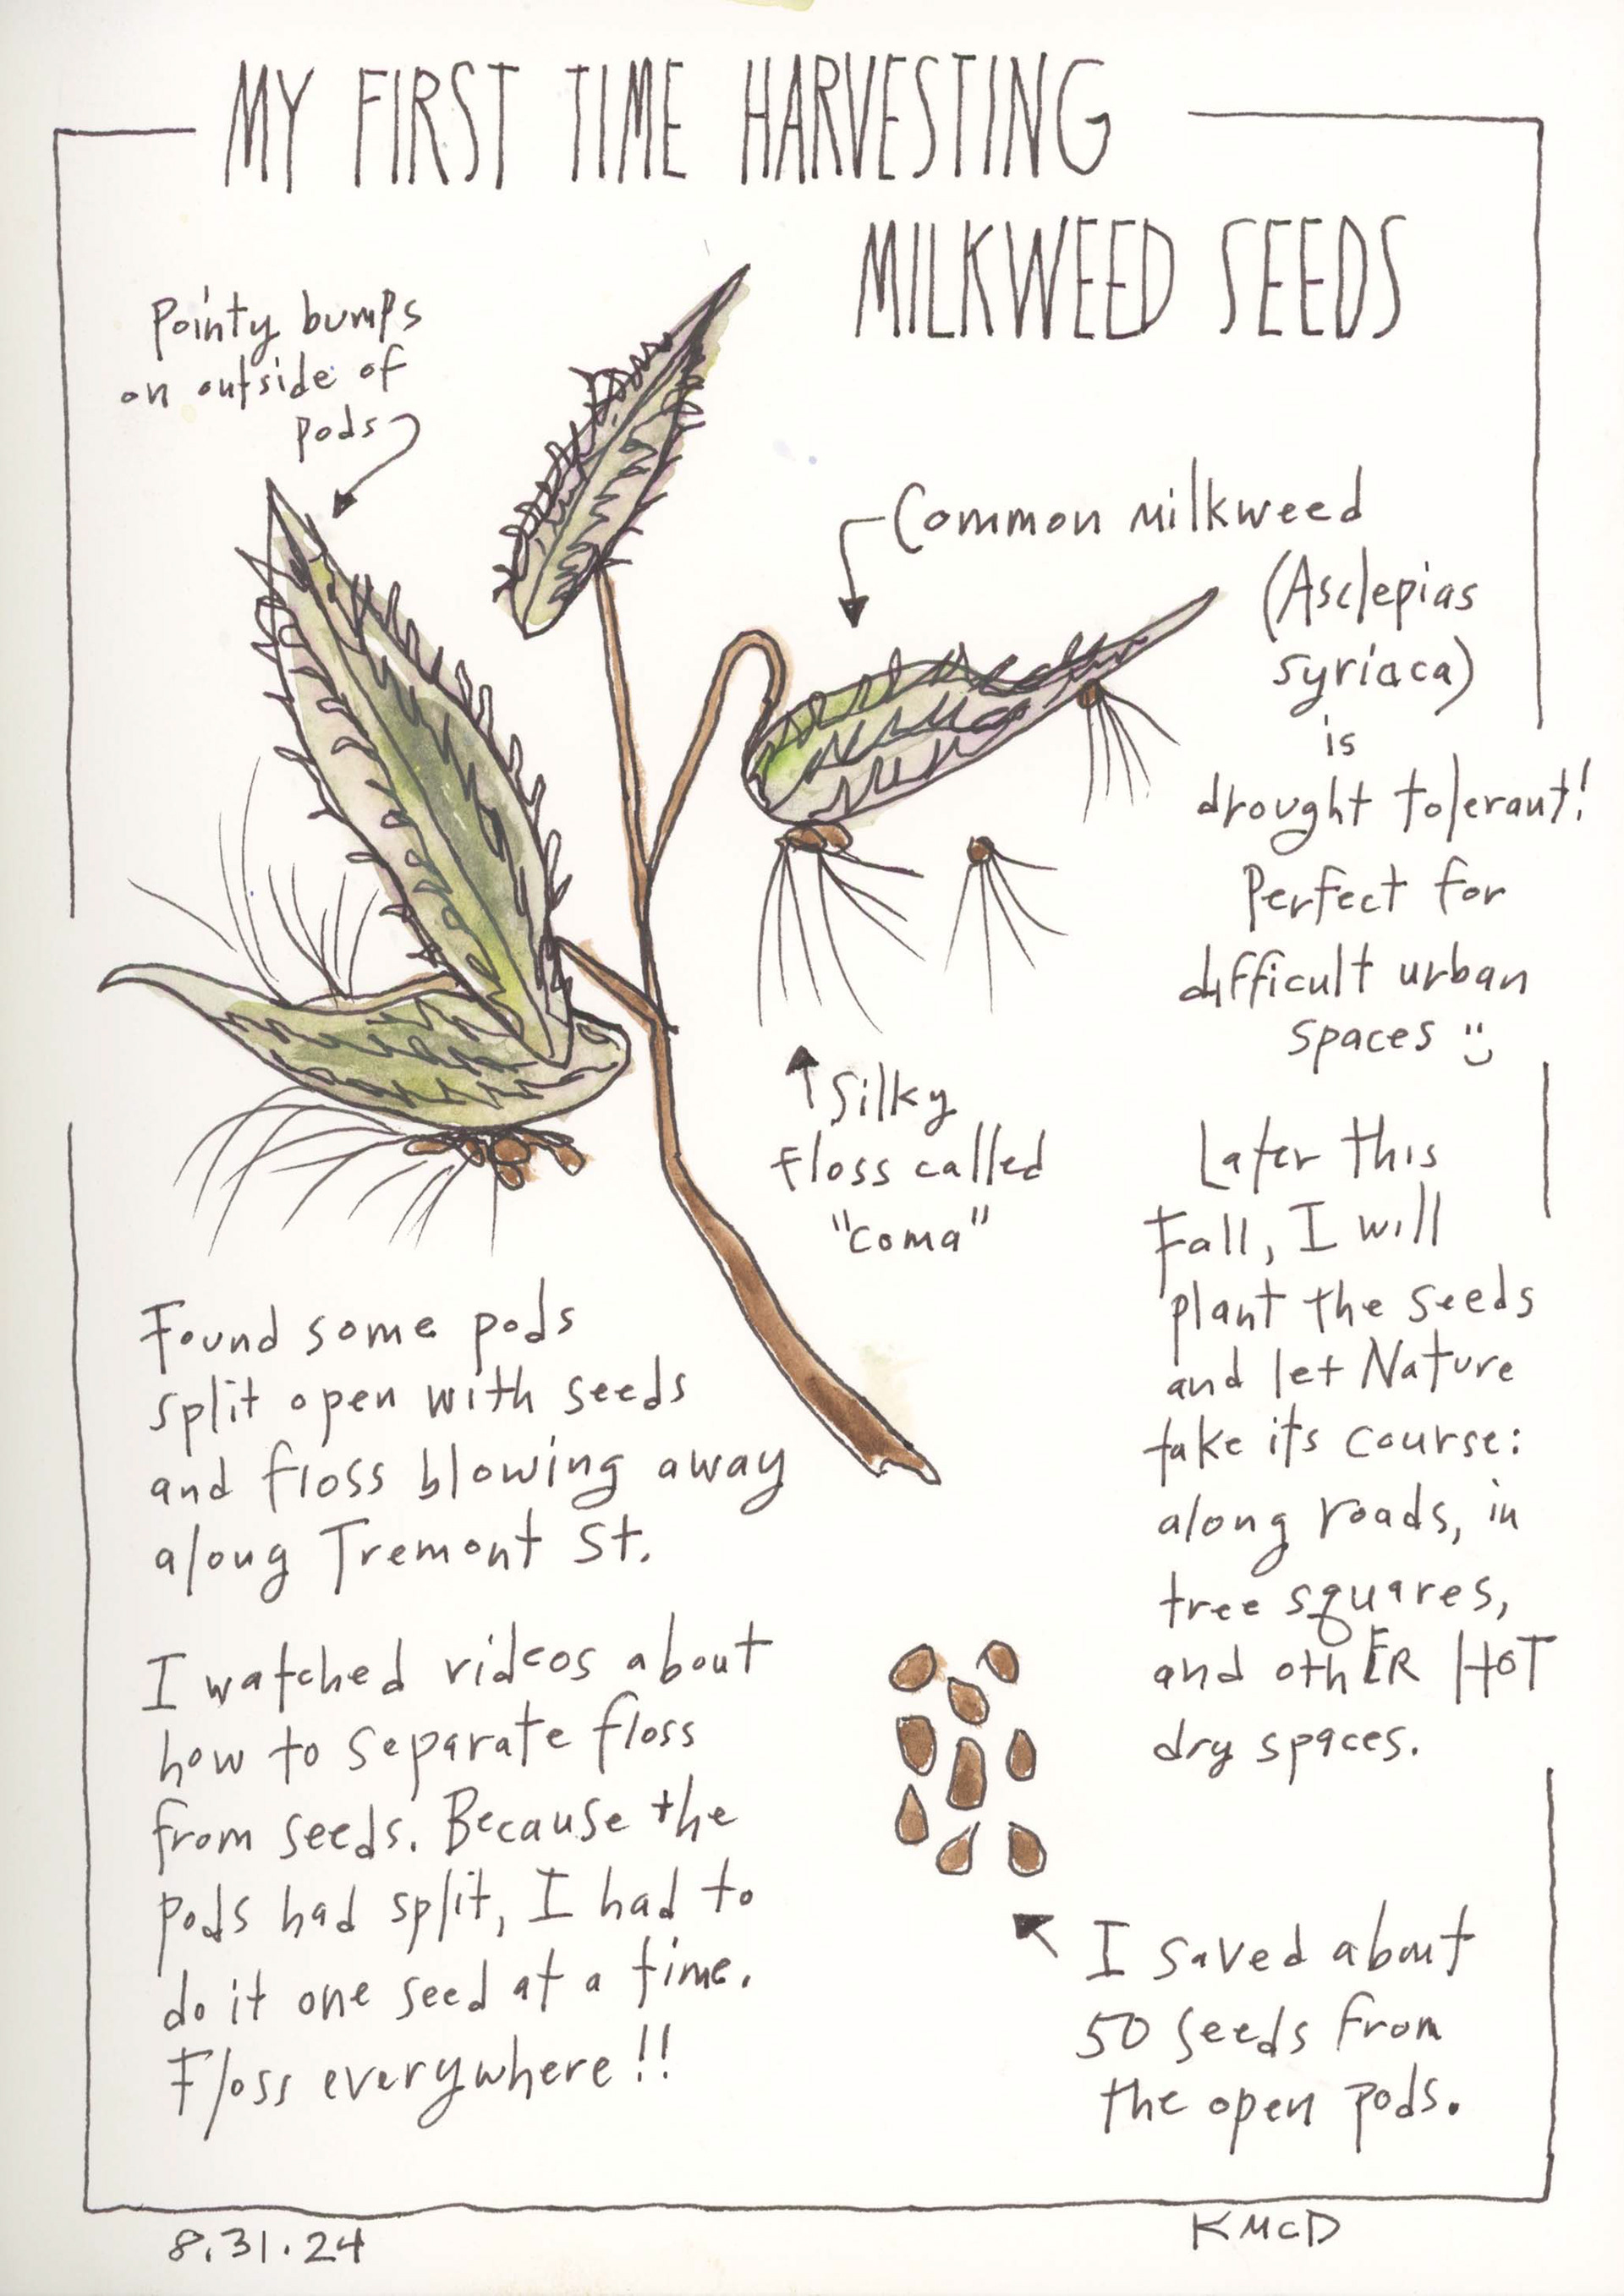 MY FIRST TIME HARVESTING
MILKWEED SEEDS
Pointy bumps
on outside of
pods
Common milkweed
(Asclepias
syriaca)
is
drought tolerant!
Perfect for
difficult urban
spaces
Silky
floss called
"coma"
Later this
Fall, I will
plant the seeds
and let Nature
take its course:
along roads, in
tree squares,
and othER HOT
dry spaces.
Found some pods
split open with seeds
and floss blowing away
along Tremont St.
I watched videos about
how to separate floss
from seeds. Because the
pods had split, I had to
do it one seed at a time.
Floss everywhere!!
I saved about
50 seeds from
the open pods.
8.31.24
KMCD